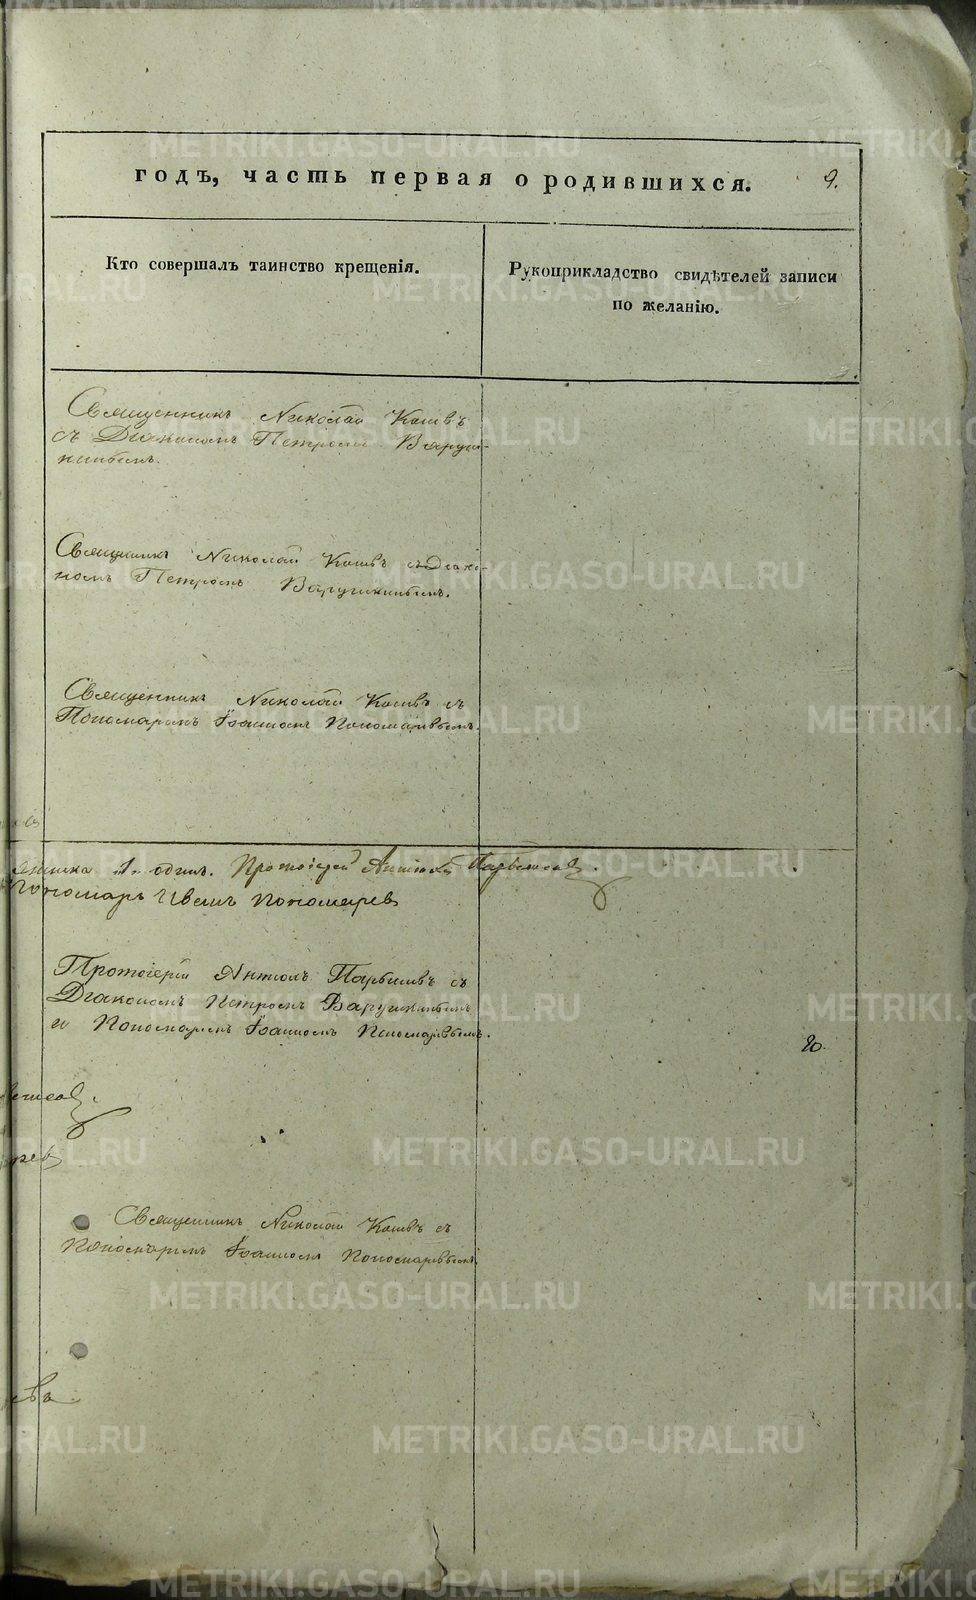 годъ, часть первая о родившихся. 9.
Кто совершалъ таинство крещенія.
Рукоприкладство свидѣтелей записи
по желанію.
Священникъ Николай
съ Діакономъ Петромъ Варуш-
кинымъ.
Священникъ Николай съ Діако-
номъ Петромъ Варушкинымъ.
Священникъ Николай съ
Пономаремъ Іоанномъ Пономаревымъ.
одинъ. Протоіерей Антоній
Пономарь Иванъ Пономарев
Протоіерей съ
Діакономъ Петромъ Варушкинымъ
и Пономаремъ Іоанномъ Пономаревымъ.
Священникъ Николай съ
Пономаремъ Іоанномъ Пономаревымъ.
METRIKI.GASO-URAL.RU